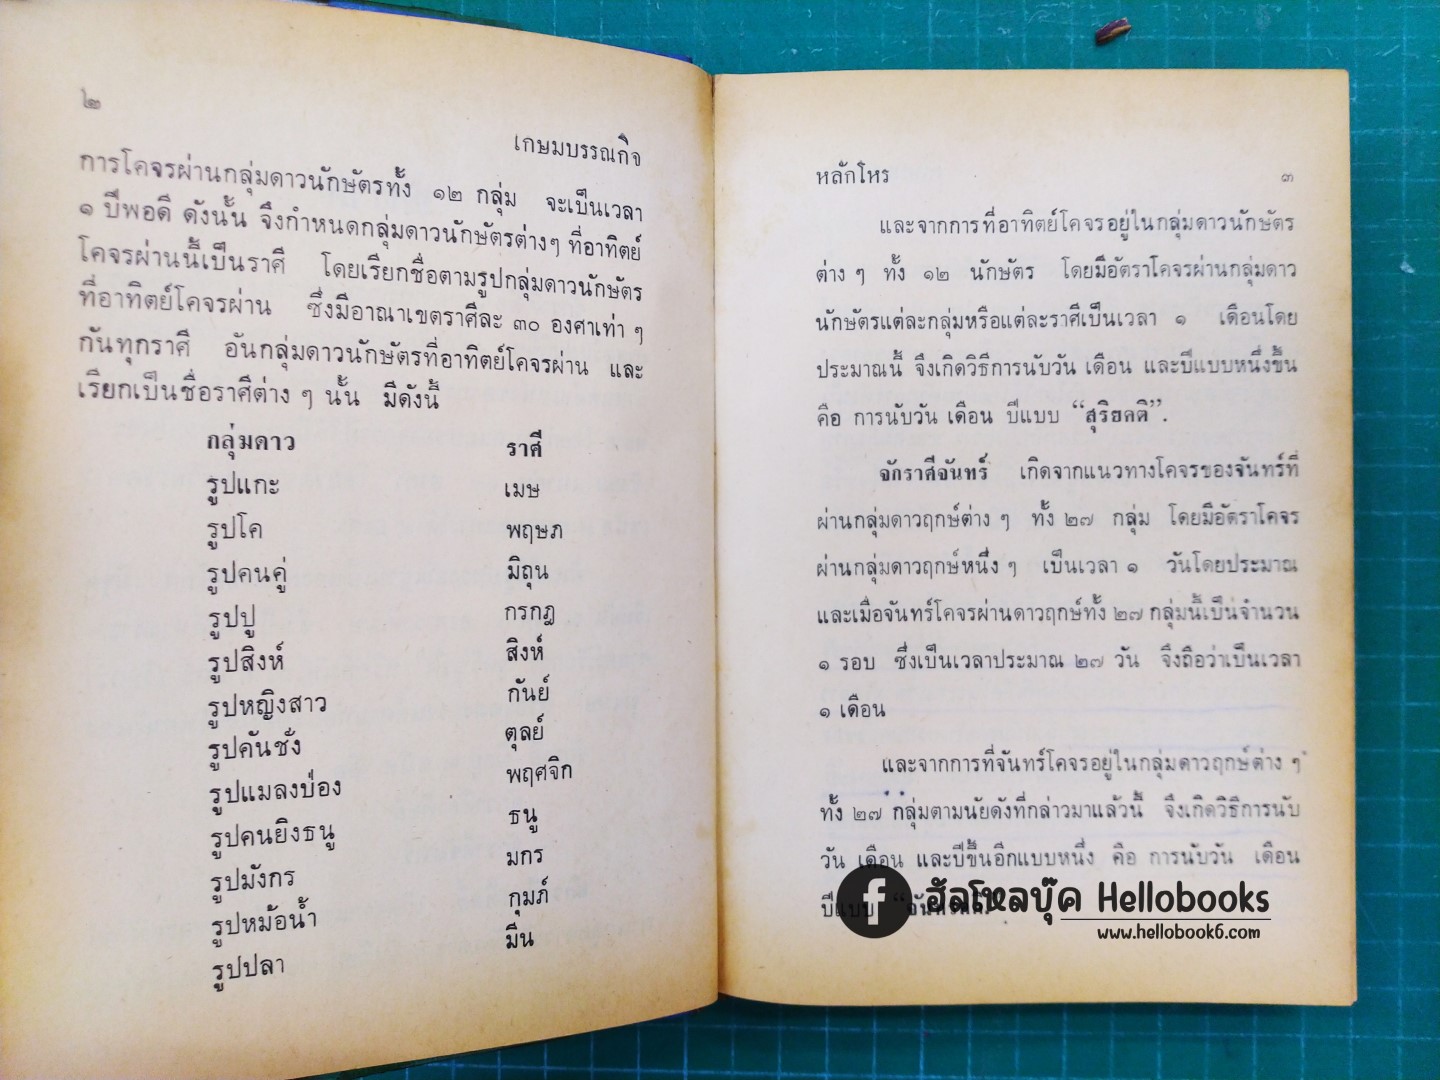 ๒
เกษมบรรณกิจ
การโคจรผ่านกลุ่มดาวนักษัตรทั้ง ๑๒ กลุ่ม จะเป็นเวลา
๑ ปีพอดี ดังนั้น จึงกำหนดกลุ่มดาวนักษัตรต่างๆ ที่อาทิตย์
โคจรผ่านนี้เป็นราศี โดยเรียกชื่อตามรูปกลุ่มดาวนักษัตร
ที่อาทิตย์โคจรผ่าน ซึ่งมีอาณาเขตราศีละ ๓๐ องศาเท่า ๆ
กันทุกราศี อันกลุ่มดาวนักษัตรที่อาทิตย์โคจรผ่าน และ
เรียกเป็นชื่อราศีต่าง ๆ นั้น มีดังนี้
กลุ่มดาว ราศี
รูปแกะ เมษ
รูปโค พฤษภ
รูปคนคู่ มิถุน
รูปปู กรกฎ
รูปสิงห์ สิงห์
รูปหญิงสาว กันย์
รูปคันชั่ง ตุลย์
รูปแมลงป่อง พฤศจิก
รูปคนยิงธนู ธนู
รูปมังกร มกร
รูปหม้อน้ำ กุมภ์
รูปปลา มีน
หลักโหร ๓
และจากการที่อาทิตย์โคจรอยู่ในกลุ่มดาวนักษัตร
ต่าง ๆ ทั้ง ๑๒ นักษัตร โดยมีอัตราโคจรผ่านกลุ่มดาว
นักษัตรแต่ละกลุ่มหรือแต่ละราศีเป็นเวลา ๑ เดือนโดย
ประมาณนี้ จึงเกิดวิธีการนับวัน เดือน และปีแบบหนึ่งขึ้น
คือ การนับวัน เดือน ปีแบบ “สุริยคติ”.
จักราศีจันทร์ เกิดจากแนวทางโคจรของจันทร์ที่
ผ่านกลุ่มดาวฤกษ์ต่าง ๆ ทั้ง ๒๗ กลุ่ม โดยมีอัตราโคจร
ผ่านกลุ่มดาวฤกษ์หนึ่ง ๆ เป็นเวลา ๑ วันโดยประมาณ
และเมื่อจันทร์โคจรผ่านดาวฤกษ์ทั้ง ๒๗ กลุ่มนี้เป็นจำนวน
๑ รอบ ซึ่งเป็นเวลาประมาณ ๒๗ วัน จึงถือว่าเป็นเวลา
๑ เดือน
และจากการที่จันทร์โคจรอยู่ในกลุ่มดาวฤกษ์ต่าง ๆ
ทั้ง ๒๗ กลุ่มตามนัยดังที่กล่าวมาแล้วนี้ จึงเกิดวิธีการนับ
วัน เดือน และปีขึ้นอีกแบบหนึ่ง คือ การนับวัน เดือน
ปีแบบ
ฮัลโหลบุ๊ค Hellobooks
www.hellobook6.com